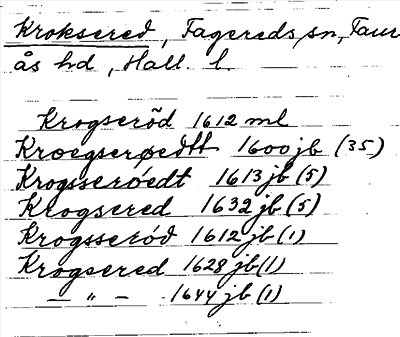 Kroksered, Fagereds sn, Faur
ås hd, Hall. l.
Krogserõd 1612 ml
Kroegserøedtt 1600 jb (35)
Krogsseróedt 1613 jb (5)
Krogsered 1632 jb (5)
Krogsseród 1612 jb (1)
Krogsered 1628 jb (1)
— " — 1644 jb (1)